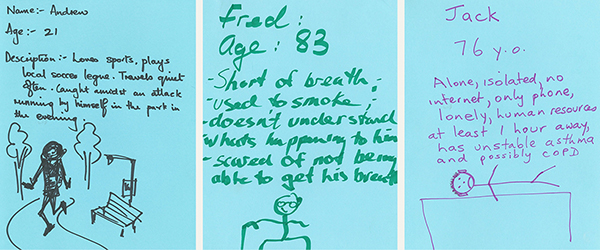 Name:- Andrew
Age:- 21
Description:- Loves sports, plays
local soccer legue. Travels quiet
often. Caught amidst an attack
running by himself in the park in
the evening.
Fred:
Age: 83
-Short of breath;
-used to smoke;
-doesn't understand
whats happening to him
-scared of not being
able to get his breath
Jack
76 y.o.
Alone, isolated, no
internet, only phone,
lonely, human resources
at least 1 hour away,
has unstable asthma
and possibly COPD